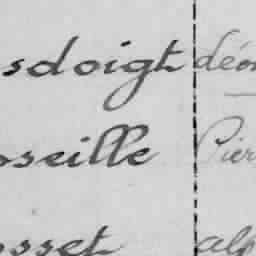 sdoigt déon
oseille Pier
osset alp